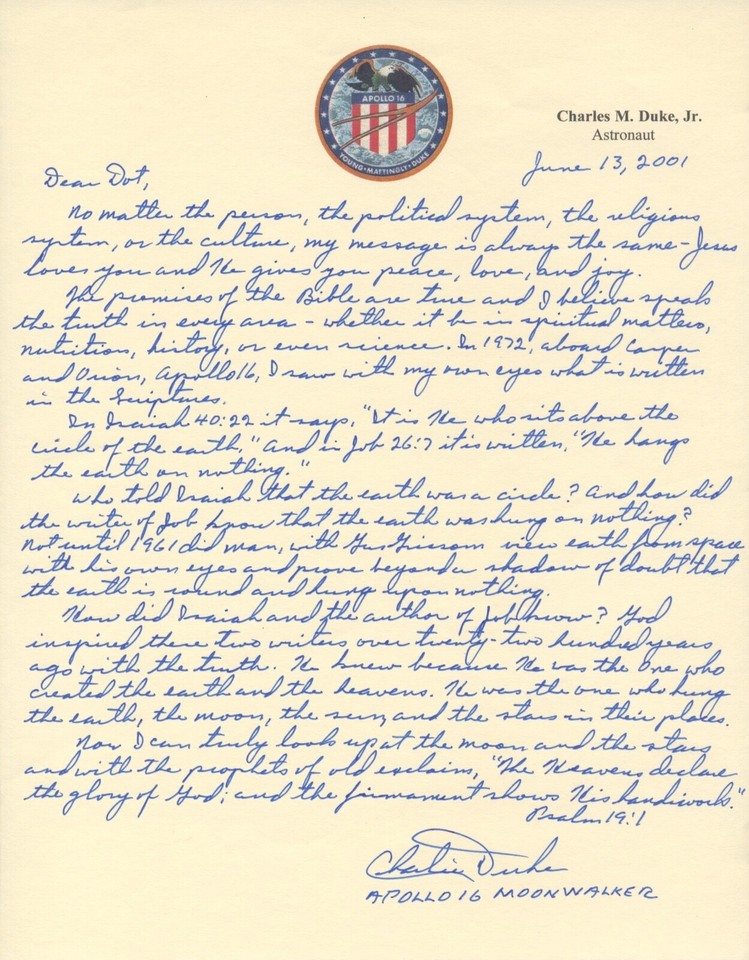 APOLLO 16
YOUNG • MATTINGLY • DUKE
Charles M. Duke, Jr.
Astronaut
June 13, 2001
Dear Dot,
No matter the person, the political system, the religious
system, or the culture, my message is always the same - Jesus
loves you and He gives you peace, love, and joy.
The premises of the Bible are true and I believe speaks
the truth in every area - whether it be in spiritual matters,
nutrition, history, or even science. In 1972, aboard Casper
and Orion, Apollo 16, I saw with my own eyes what is written
in the Scriptures.
In Isaiah 40:22 it says, "It is He who sits above the
circle of the earth," and in Job 26:7 it is written, "He hangs
the earth on nothing."
Who told Isaiah that the earth was a circle? And how did
the writer of Job know that the earth was hung on nothing?
Not until 1961 did man, with Gus Grissom view earth from space
with his own eyes and prove beyond a shadow of doubt that
the earth is round and hung upon nothing.
How did Isaiah and the author of Job know? God
inspired these two writers over twenty-two hundred years
ago with the truth. He knew because He was the One who
created the earth and the heavens. He was the one who hung
the earth, the moon, the sun, and the stars in their places.
Now I can truly look up at the moon and the stars
and with the prophets of old exclaim, "The Heavens declare
the glory of God; and the firmament shows His handiwork."
Psalm 19:1
Charlie Duke
APOLLO 16 MOONWALKER